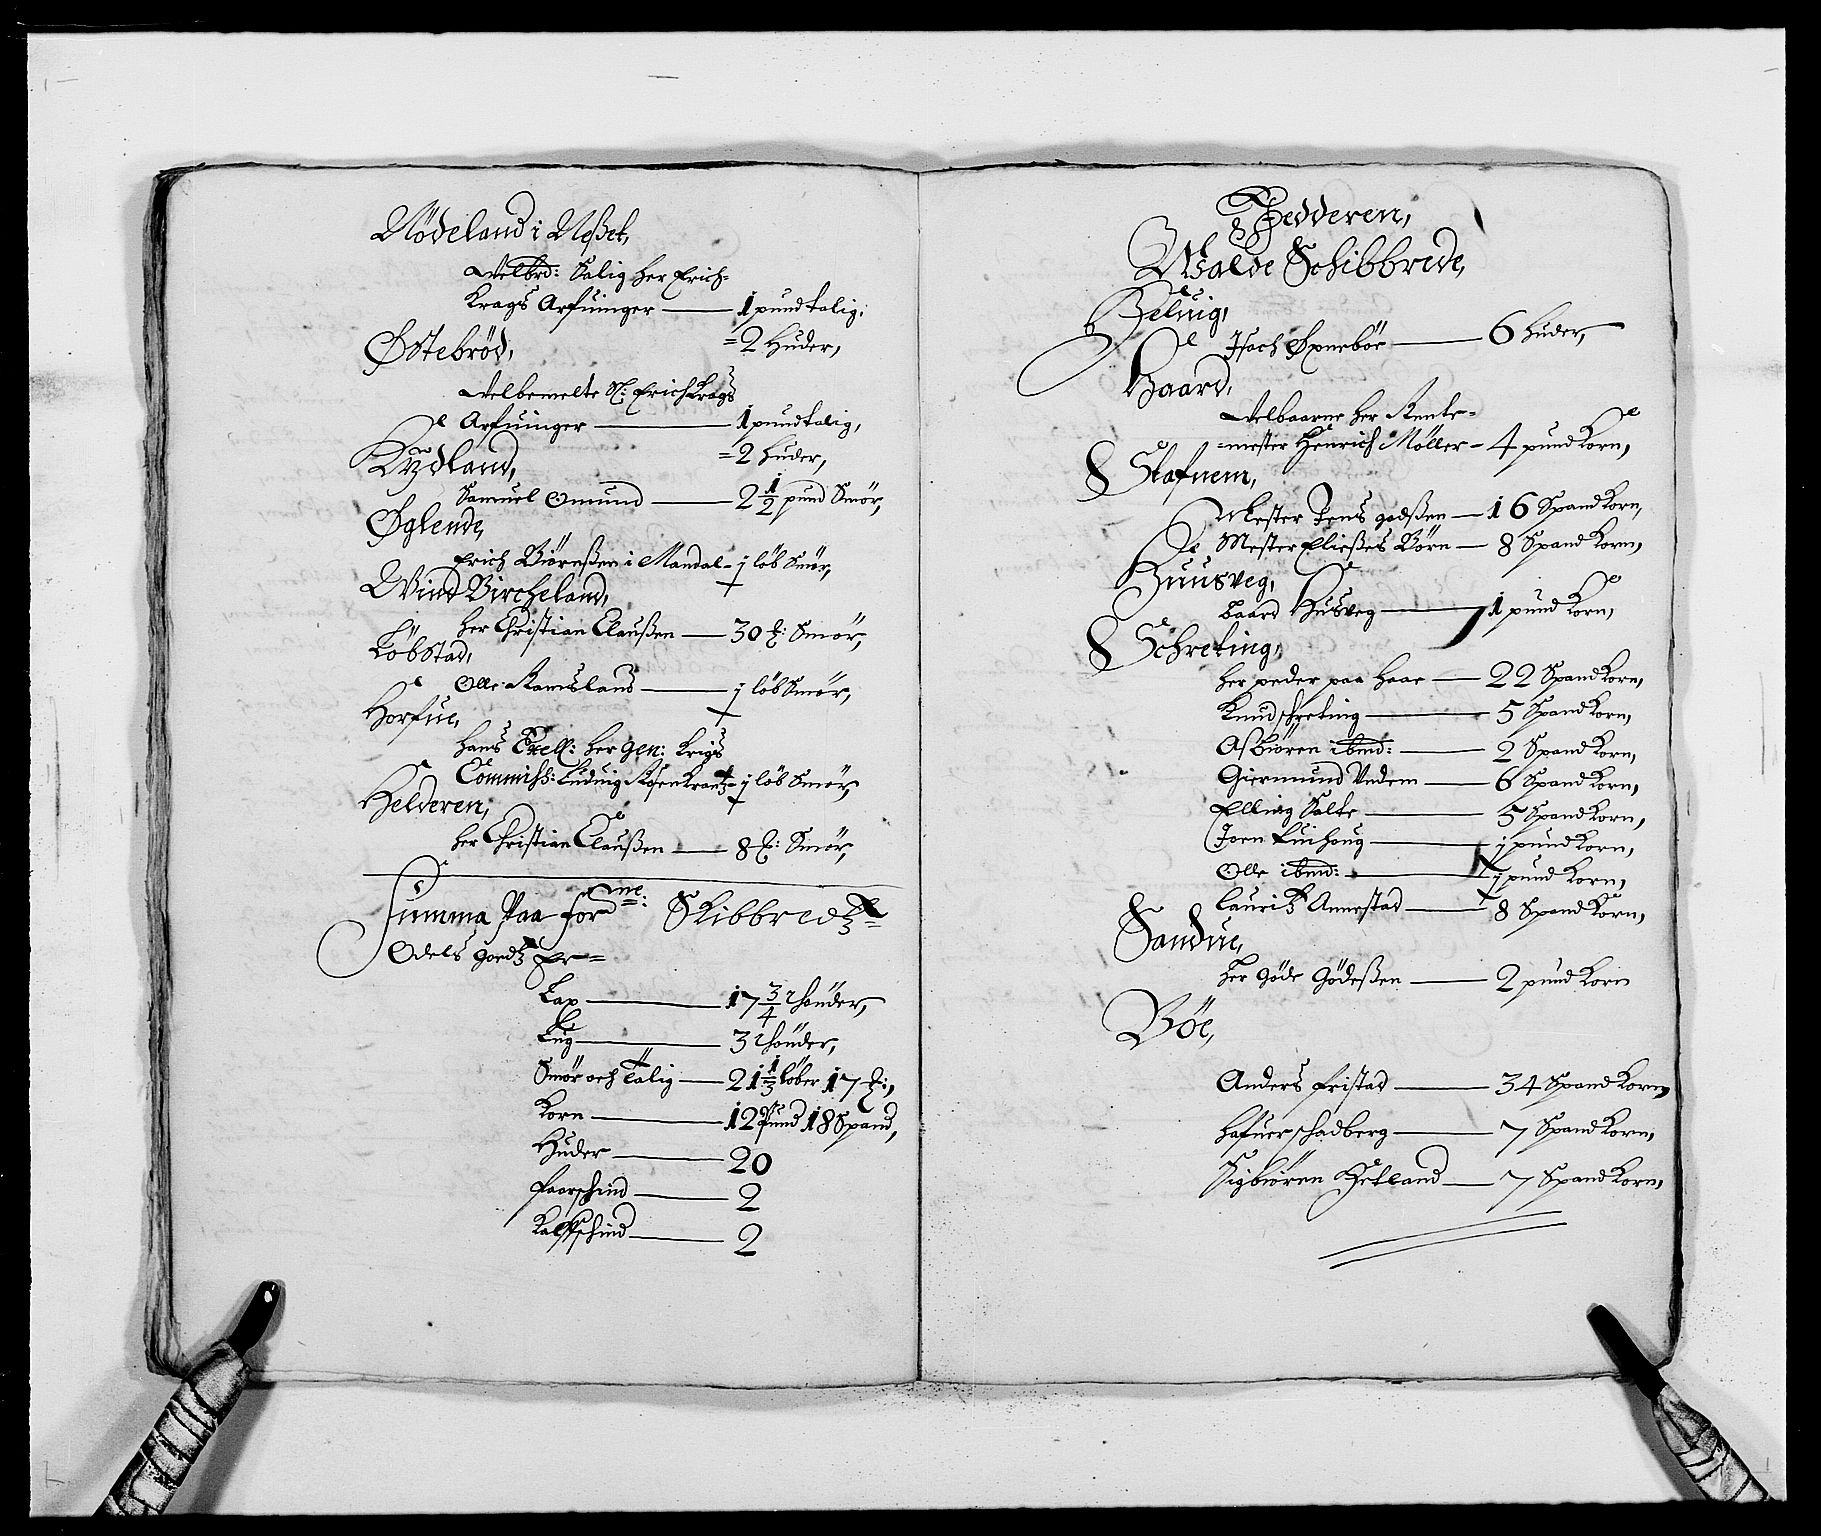 Nödeland i Neßet,
Velbrd: Salig her Erich
Krags Arfuinger — 1 pund talig;
= 2 Huder,
Østebröd,
Velbemelte Sl: Erich Krags
Arfuinger — 1 pund talig,
= 2 huder,
Kydland,
Samuel Omund — 2 1/2 pund Smör,
Øglende,
Erich Biörnßen i Mandal - j löb Smör,
Wind Bircheland,
her Christian Claußen — 30 ℔: Smör,
Löbstad,
Olle Ramsland — j löb Smör,
Horfue,
hans Excell: her gen: krigs
Commiss: Ludvig Rosenkrantz - j löb Smör,
Helderen,
her Christian Claußen — 8 ℔: Smör,
Summa Paa forne: Skibbredtz=
Odels goedtz Er=
Lax — 17 3/4 thönder,
Lug — 3 thönder,
Smör och talig — 21 1/3 löber 17 ℔;
Korn — 12 pund 18 Spand,
Huder — 20
faarschind — 2
Kalfschind — 2
Jedderen,
Walde Schibbrede,
Heluig,
Isach Øxneböe — 6 huder,
Haard,
Velbaarne her Rente=
=mester Henrich Møller — 4 pund Korn,
Stafnem,
Mester Jens godßen — 16 Spand Korn,
Mester Eließes Börn — 8 Spand Korn,
Huusveg,
Baard Husveg — 1 pund Korn,
Schreting,
her peder paa Haae — 22 Spand Korn,
Knud schreting — 5 Spand Korn,
Asbiören ibmd: — 2 Spand Korn,
Giermund Undem — 6 Spand Korn,
Elling Salte — 5 Spand Korn,
Joen Tuihoug — j pund Korn,
Olle ibmd: — j pund Korn,
Lauritz Annestad — 8 Spand Korn,
Sandue,
her Göde Gödeßen — 2 pund Korn
Böe,
Anders fristad — 34 Spand Korn,
hafuer schadberg — 7 Spand Korn,
Sigbiören Hetland — 7 Spand Korn,